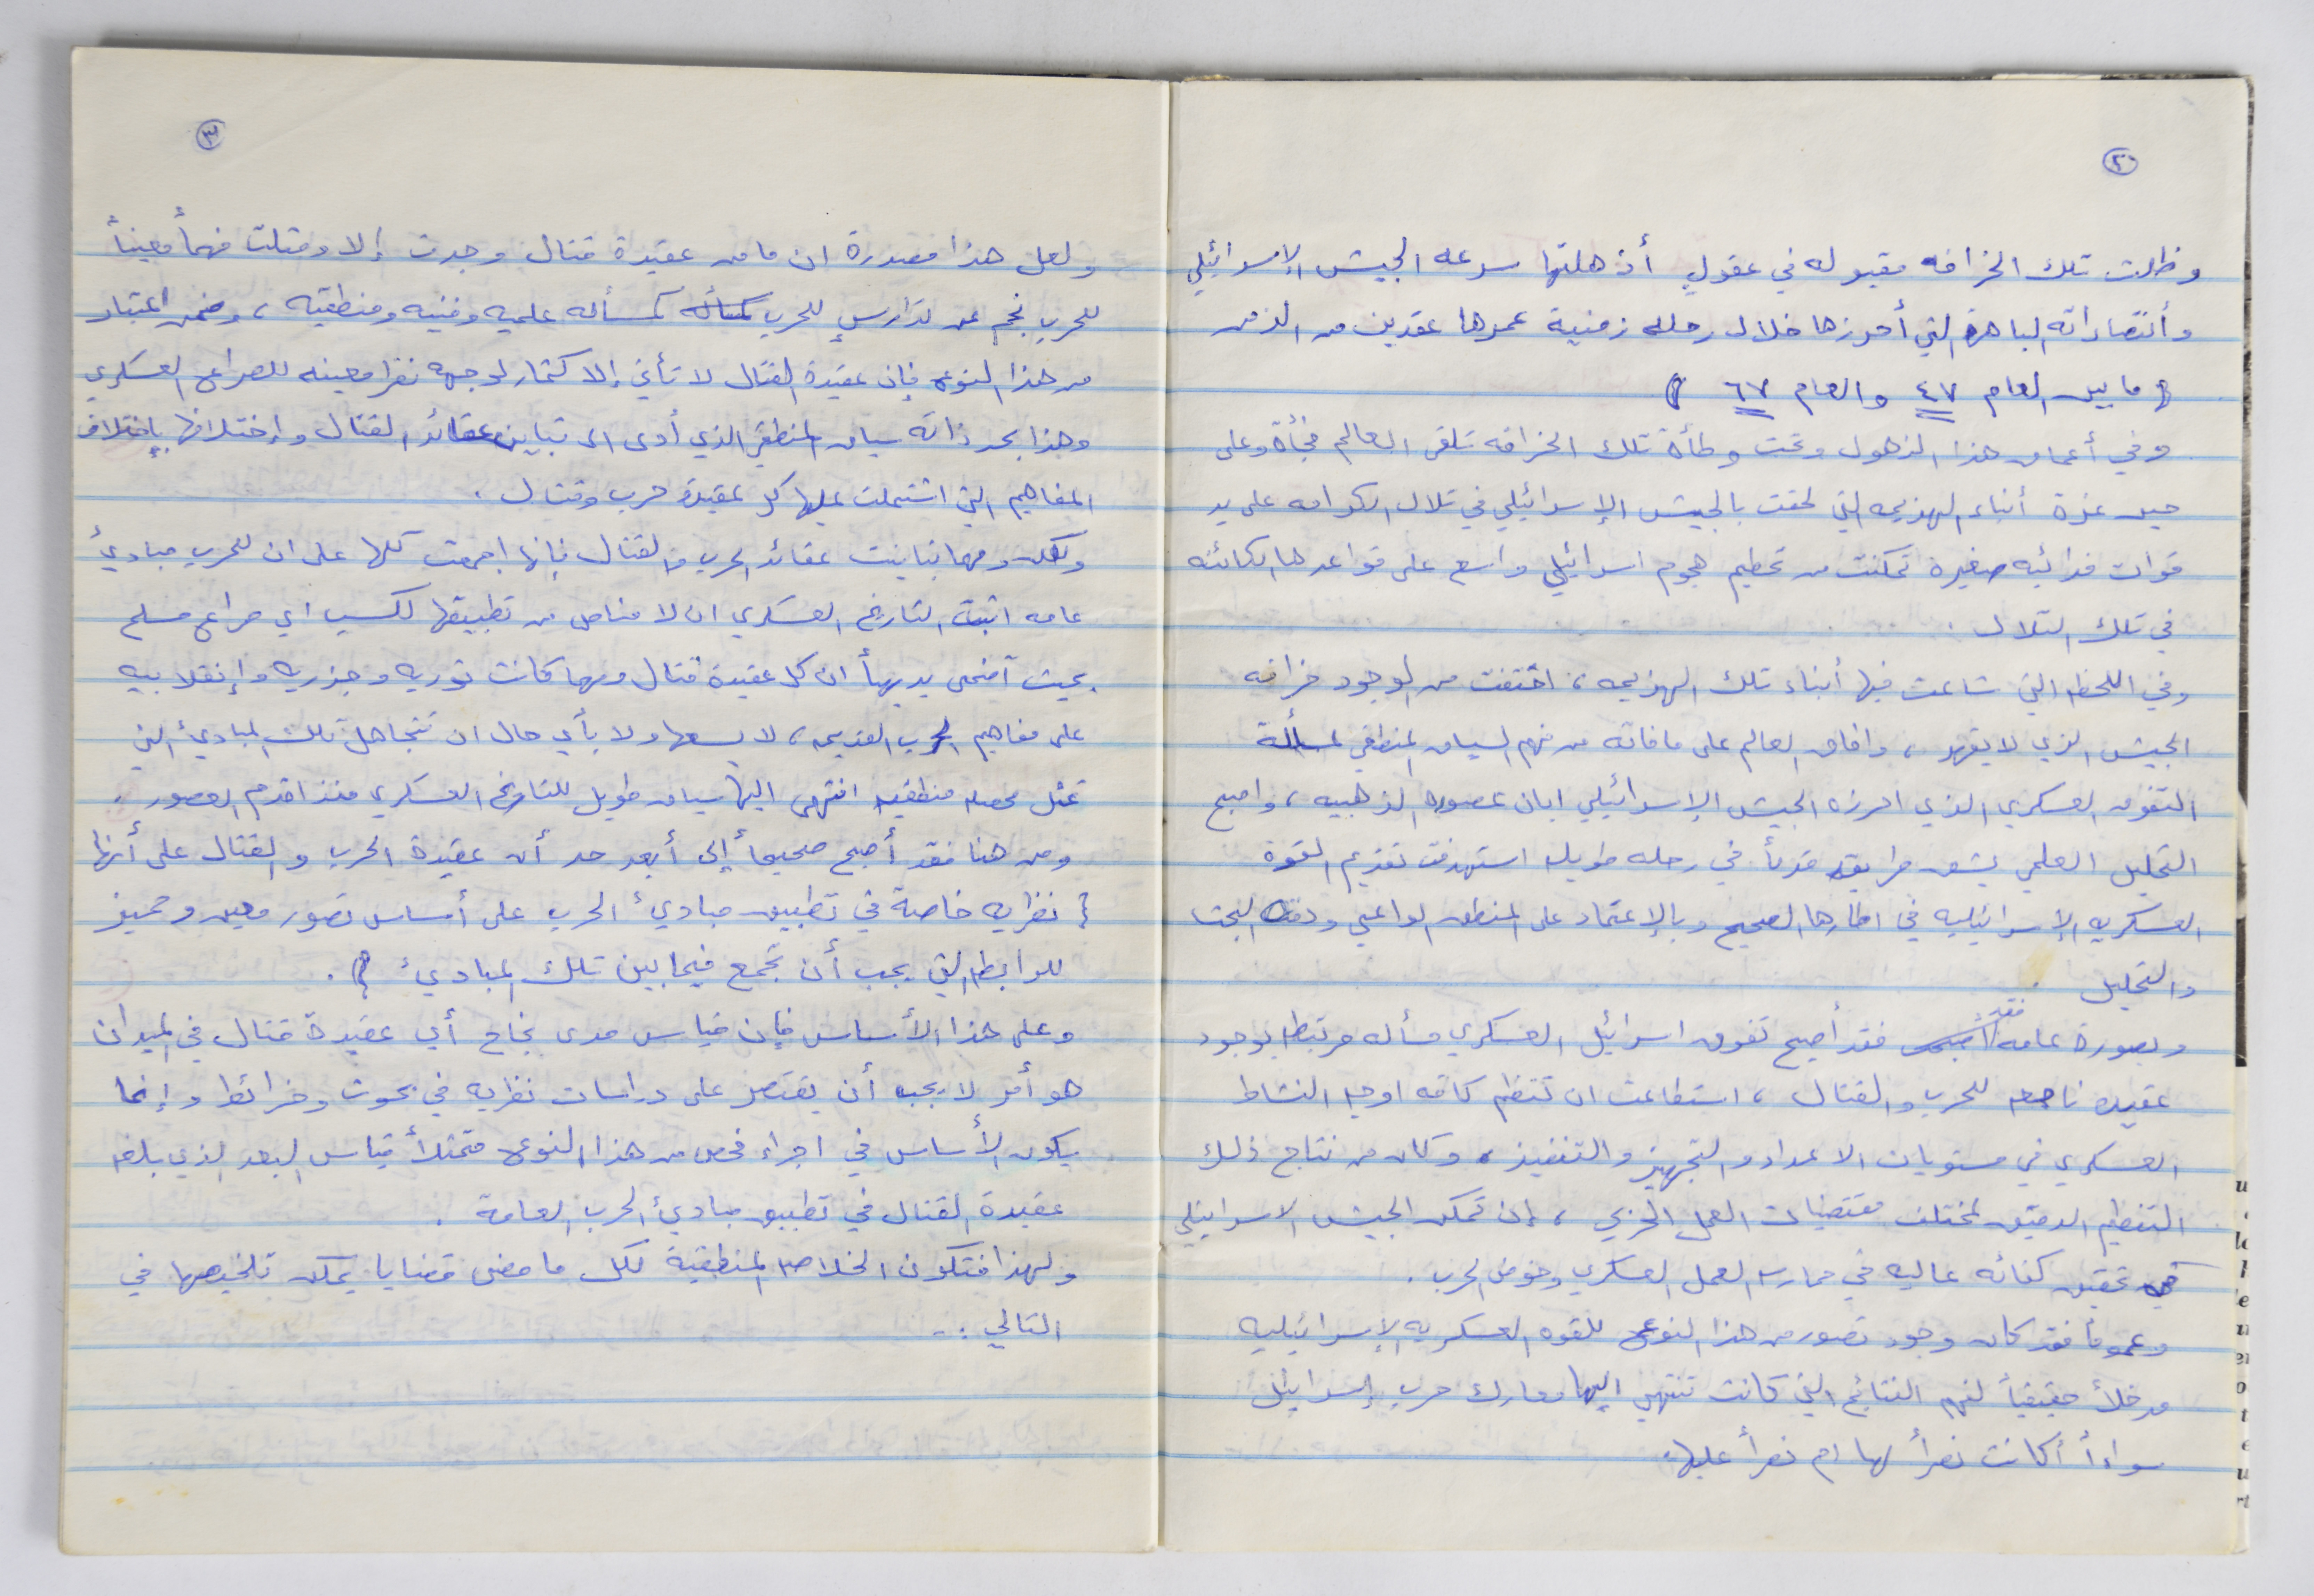 ٢
وظلت تلك الخرافه مقبوله في عقول أذهلتها سرعه الجيش الإسرائيلي
وأنتصاراته الباهرة التي أحرزها خلال رحله زمنية عمرها عقدين من الزمن
{ ما بين العام ٤٧ والعام ٦٧ }
وفي أعماق هذا الذهول وتحت وطأة تلك الخرافه تلقى العالم فجأة وعلى
حين غرة أنباء الهزيمه التي لحقت بالجيش الإسرائيلي في تلال الكرامه على يد
قوات فدائيه صغيرة تمكنت من تحطيم هجوم اسرائيلي واسع على قواعدها الكائنه
في تلك التلال .
وفي اللحظه التي شاعت فيها أنباء تلك الهزيمه ، اختفت من الوجود خرافه
الجيش الذي لا يقهر ، وافاق العالم على ما فاته من فهم السياق المنطقي لمسألة
التفوق العسكري الذي احرزه الجيش الإسرائيلي ابان عصوره الذهبيه ، واصبح
التحليل العلمي يشق طريقه قدماً في رحله طويله استهدفت تقديم القوة
العسكريه الإسرائيليه في اطارها الصحيح وبالإعتماد على المنطق الواعي ودقة البحث
والتحليل .
وبصورة عامه فقد أصبح تفوق اسرائيل العسكري مسأله مرتبطه بوجود
عقيده ناجحه للحرب والقتال ، استطاعت ان تنظم كافه اوجه النشاط
العسكري في مستويات الاعداد والتجهيز والتنفيذ ، وكان من نتاج ذلك
التنظيم الدقيق لمختلف مقتضيات العمل الحربي ، إن تمكن الجيش الاسرائيلي
من تحقيق كفائه عاليه في ممارسه العمل العسكري وخوض الحرب .
وعموماً فقد كان وجود تصور من هذا النوع للقوه العسكريه الإسرائيليه
مدخلاً حقيقياً لفهم النتائج التي كانت تنتهي اليها معارك حرب إسرائيل
سواءاً أكانت نصراً لها ام نصراً عليها .
٣
ولعل هذا مصدرة ان ما من عقيدة قتال وجدت إلا ومثلت فهماً معيناً
للحرب نجم عن تدارسٍ للحرب كمسأله علميه وفنيه ومنطقيه ، وضمن اعتبار
من هذا النوع فإن عقيدة القتال لا تأتي إلا كثمار لوجهه نظر معينه للصراع العسكري
وهذا بحد ذاته سياق المنطق الذي أدى الى تباين عقائد القتال وإختلافها بإختلاف
المفاهيم التي اشتملت عليها كل عقيدة حرب وقتال .
ولكن ومهما تباينت عقائد الحرب والقتال فإنها اجمعت كلها على ان للحرب مبادئ
عامه اثبت التاريخ العسكري ان لا مناص من تطبيقها لكسب اي صراع مسلح
بحيث أضحى بديهياً ان كل عقيدة قتال ومهما كانت ثوريه وجذريه وإنقلابيه
على مفاهيم الحرب القديمه ، لا يسعها ولا بأي حال ان تتجاهل تلك المبادئ التي
تمثل محصله منطقيه انتهى اليها سياق طويل للتاريخ العسكري منذ اقدم العصور .
ومن هنا فقد أصبح صحيحاً إلى أبعد حد أن عقيدة الحرب والقتال على أنها
{ نظريه خاصة في تطبيق مبادئ الحرب على أساس تصور معين ومميز
للرابطه التي يجب أن تجمع فيما بين تلك المبادئ } .
وعلى هذا الأساس فإن قياس مدى نجاح أي عقيدة قتال في الميدان
هو أمر لا يجب أن يقتصر على دراسات نظريه في بحوث وخرائط وإنما
يكون الأساس في اجراء فحص من هذا النوع متمثلاً قياس البعد الذي بلغه
عقيدة القتال في تطبيق مبادئ الحرب العامة .
ولهذا فتكون الخلاصه المنطقية لكل ما مضى قضايا يمكن تلخيصها في
التالي : -